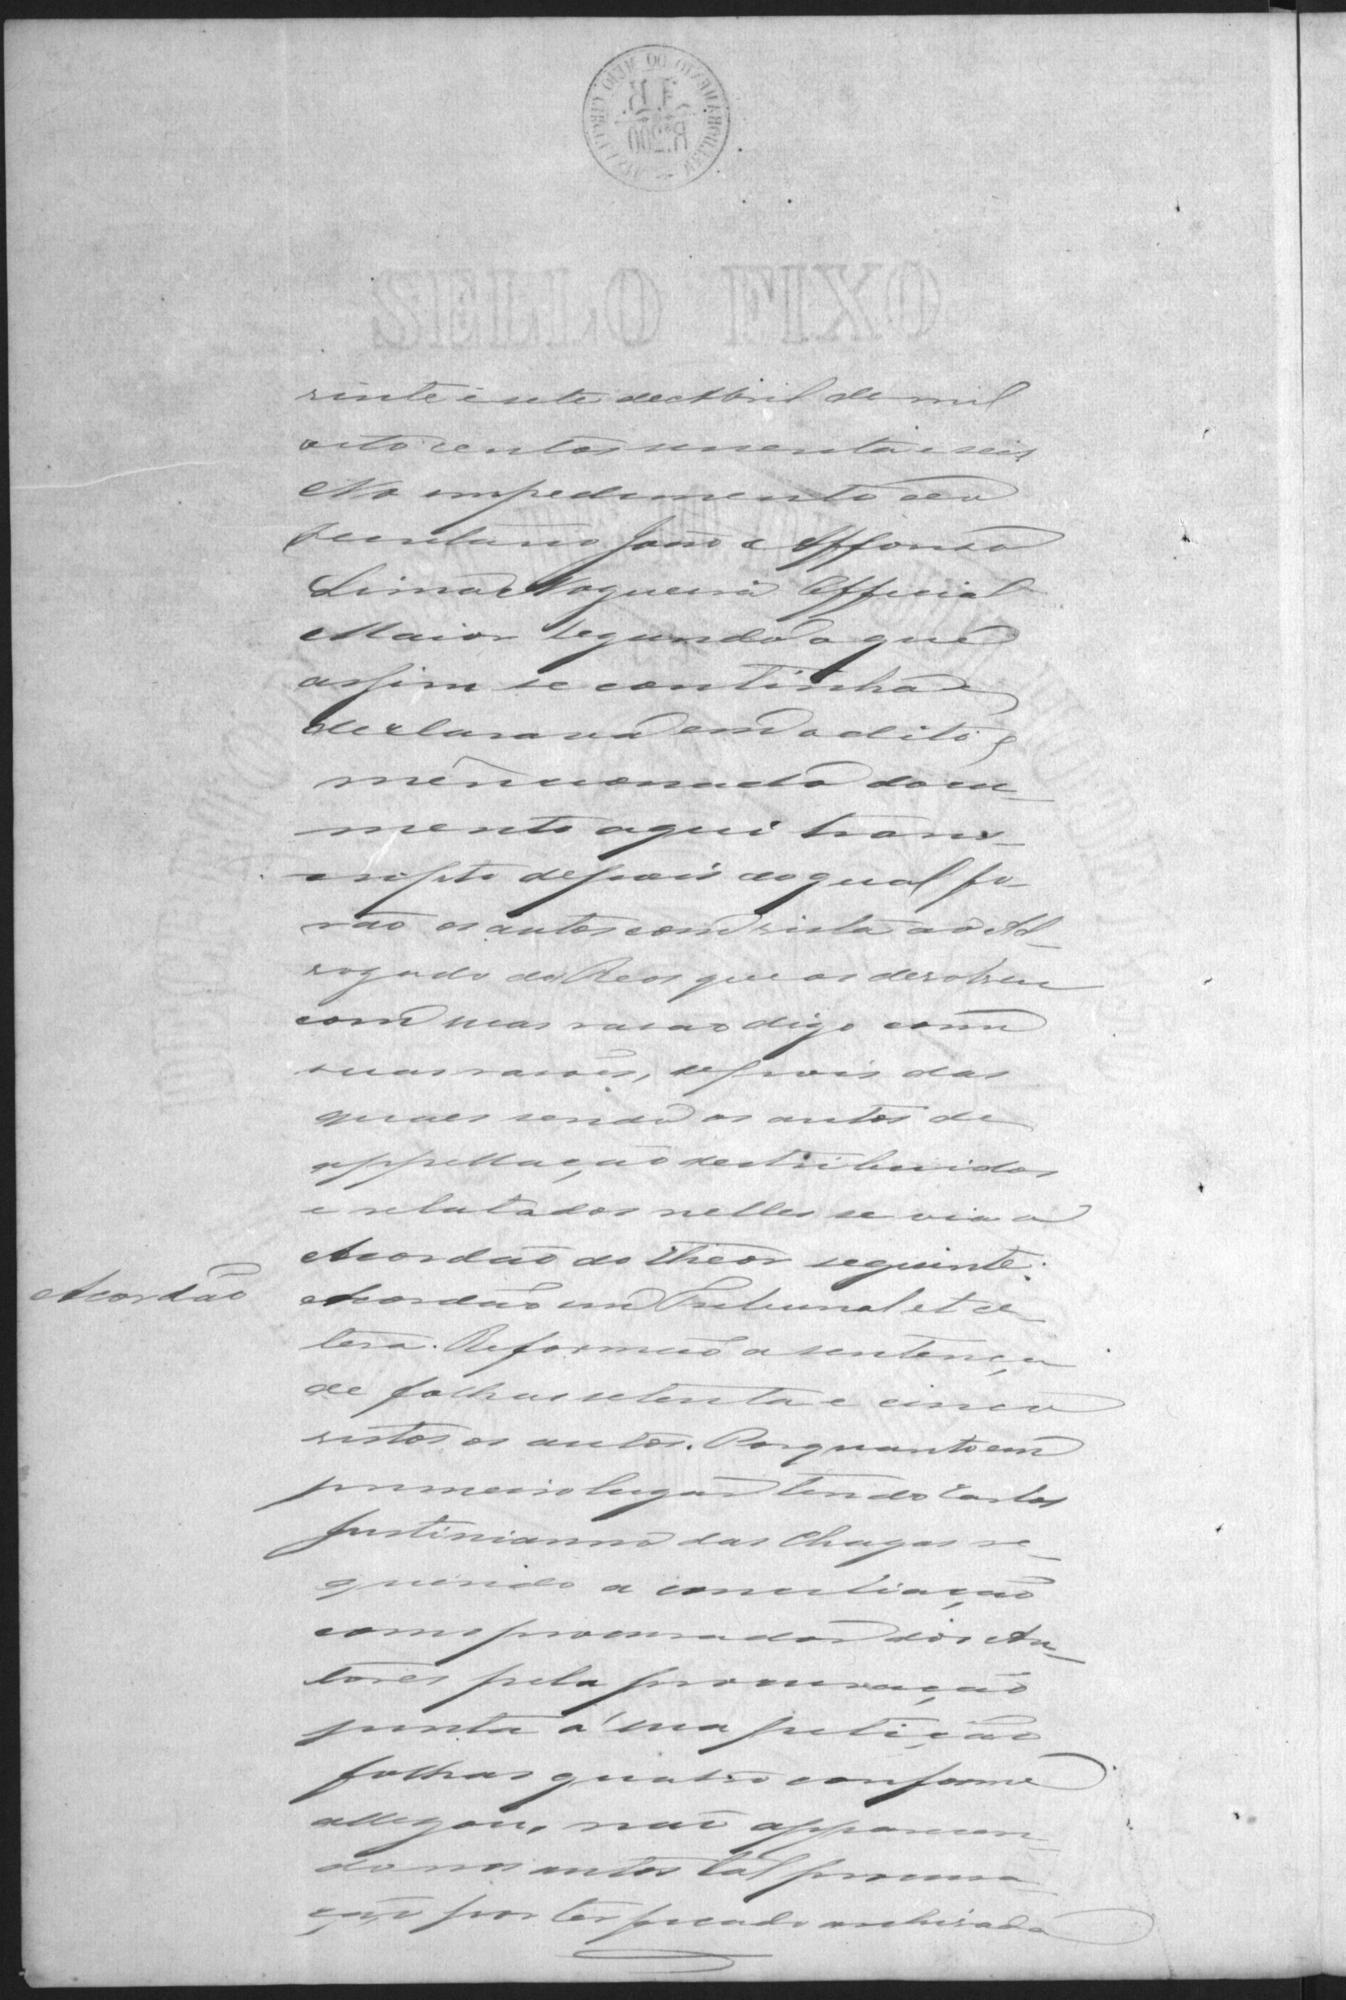 vinte e sete de Abril de mil
oito centos secenta e seis
No impedimento do
Secretario João Affonso
Lima Nogueira Official
Maior Segundo o que
assim se continha e
declarava em o dito e
mencionado docu-
mento aqui trans-
cripto depois do qual fo-
rão os autos com vista ao Ad-
vogado dos Reos que os devolveu
com suas rasao digo com
suas rasões, depois das
quaes sendo os autos de
appellação destribuidos
e relatados nelles se via o
Acordão do theor seguinte:
Acordão
Acordão em Tribunal et ce
tera. Reformão a sentença
de folhas setenta e cinco
vistos os autos. Porquanto em
primeiro lugar tendo Carlos
Justinianno das Chagas re-
querido a conciliação
como procurador dos Au-
tores pela procuração
junta á sua petição
folhas quatro conforme
allegou, não apparecen-
do nos autos tal procura-
ção por ter ficado archivada